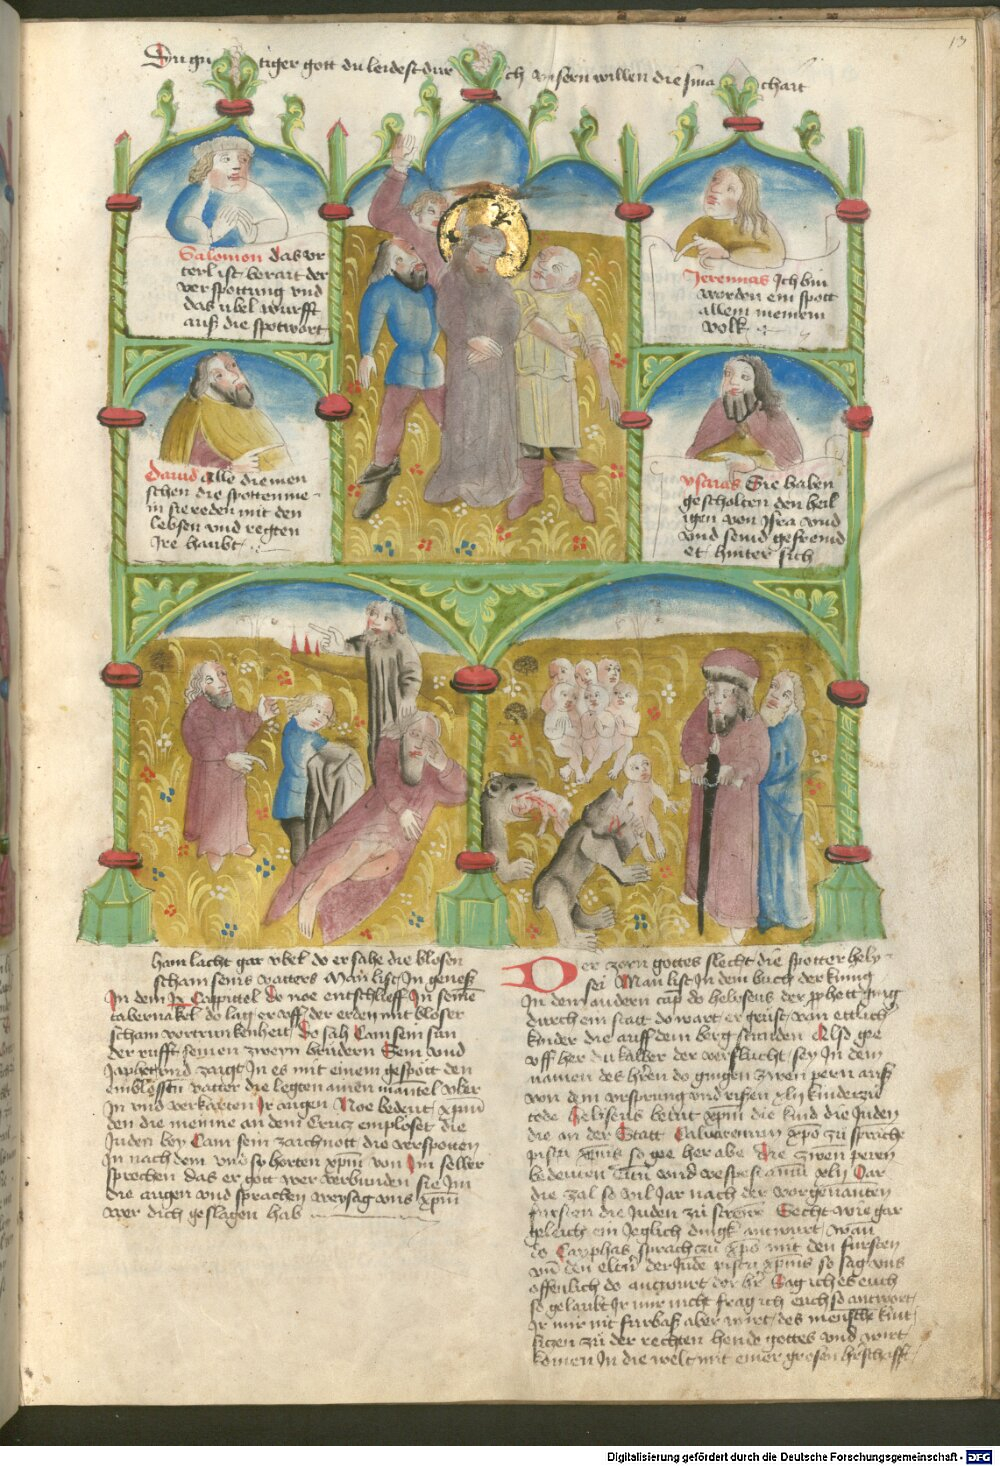 13
Du gutiger gott du leidest durch vnsern willen die smachait
Salomon das vr
teil ist berait der
verspottung vnd
das ubel wurfft
auß die spotwort
Jeremias Ich bin
worden ein spott
allem meinem
volk
dauid Alle die men
schen die spotten me
in sie reden mit den
lebsen vnd regten
Ire haubt
ysaias Sie haben
gescholten den heil
igen von Isra vnd
vnd seind gefremd
et hinter sich
ham lacht gar vbel do er sahe die blosen
scham seins vatters Man list In genesi
In dem Ix Cappittel Do noe entschlieff In seinem
tabernakel do lag er vff der erden mit bloser
scham vor trunkenheit Do sah Cam sein sun
der rufft seinen zweyn brudern Sem vnd
Japhet vnd zaigt In es mit einem gespott den
emblosten vatter die legten ainen mantel vber
In vnd verkarten Ir augen Noe bedeut xpm
den die menne an dem Creuz emplöset die
Juden bey Cam sein zaichnott die verspotten
In nach dem vnd sy horten xpm von Im selber
sprechen das er gott wer verbunden sie Im
die augen vnd sprachen weysag vns xpm
wer dich geslagen hab
Der zorn gottes slecht die spotter hely
sei Man list In dem buch der kunig
In dem andern cap do heliseus der pphett ging
durch ein statt do wart er grust von ettlich
kinder die auff dem berg stunden Also gee
vff her du kalber der verflucht sey In dem
namen des hern do gingen zwen pern auß
von dem vrsprung vnd rissen xlij kinder zu
tode Heliseus bedut xpm die kind die Juden
die an der Statt Caluarenum xpo zu sprache
pistu xpus so gee her abe Die zwen pern
bedeuten titum vnd vespesianum xlij Jar
die zal so vil Jar nach der vorgenanten
fursten die Juden zu
geleich ein Jeglich dingk antwurt wan
do Cayphas sprach zu xpo mit den fursten
vnd den eltern der Jude pistu xpus so sag vns
offenlich do antwurt der her Sag ich es euch
so gelaubt Ir mir nicht frag ich euch so antwort
Ir mir nit furbas aber wirt des mensche kint
siczen zu der rechten hende gottes vnd wirt
komen In die welt mit einer grosen herschafft
Digitalisierung gefördert durch die Deutsche Forschungsgemeinschaft - DFG